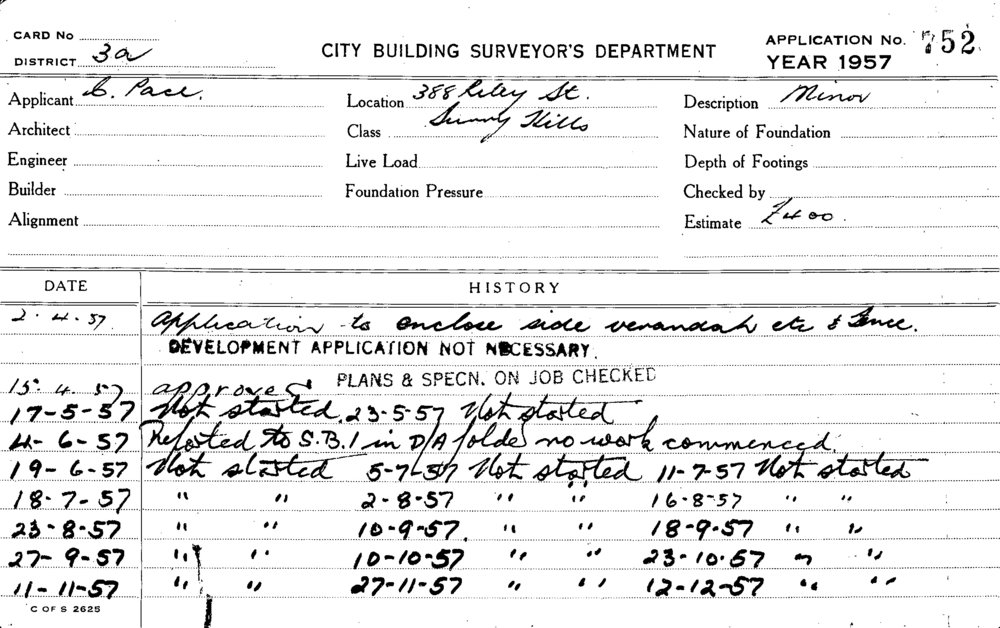 CARD No
DISTRICT 3a
CITY BUILDING SURVEYOR'S DEPARTMENT
APPLICATION No. 752
YEAR 1957
Applicant C. Pace. Location 388 Riley St. Description Minor
Architect Class Surry Hills Nature of Foundation
Engineer Live Load Depth of Footings
Builder Foundation Pressure Checked by
Alignment Estimate £400.
DATE HISTORY
2.4.57. Application to enclose side verandah etc & Fence.
DEVELOPMENT APPLICATION NOT NECESSARY.
15.4.57 approved PLANS & SPECN. ON JOB CHECKED
17-5-57 Not started. 23-5-57 Not started
4-6-57 Reported to S.B.I in D/A folder no work commenced.
19-6-57 Not started 5-7-57 Not started 11-7-57 Not started
18-7-57 " " 2-8-57 " " 16-8-57 " "
23-8-57 " " 10-9-57. " " 18-9-57 " "
27-9-57 " " 10-10-57 " " 23-10-57 " "
11-11-57 " " 27-11-57 " " 12-12-57 " "
C OF S 2625